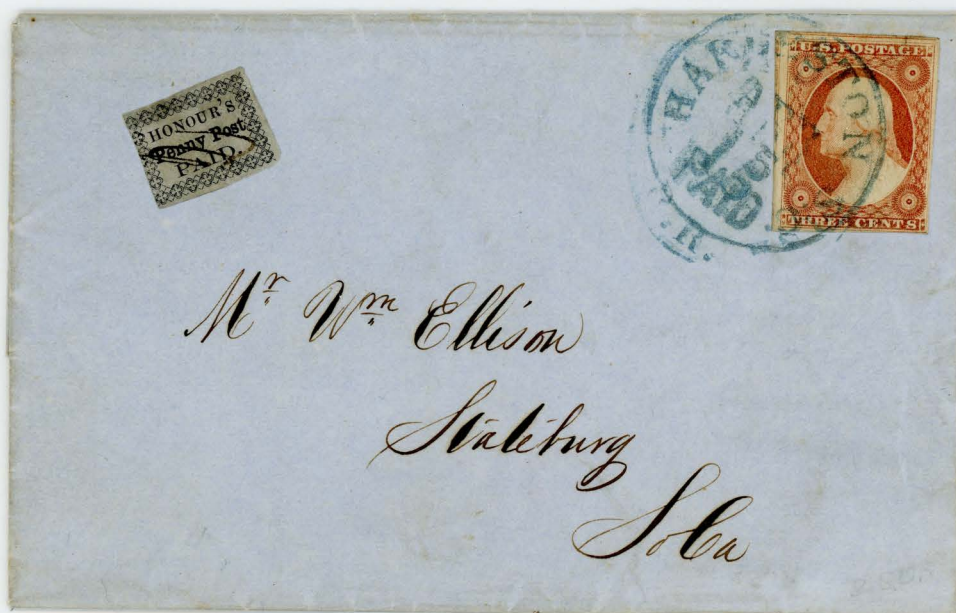 HONOUR'S
Penny Post
PAID.
U.S. POSTAGE
THREE CENTS
PAID
Mr Wm Ellison
Stateburg
So Ca